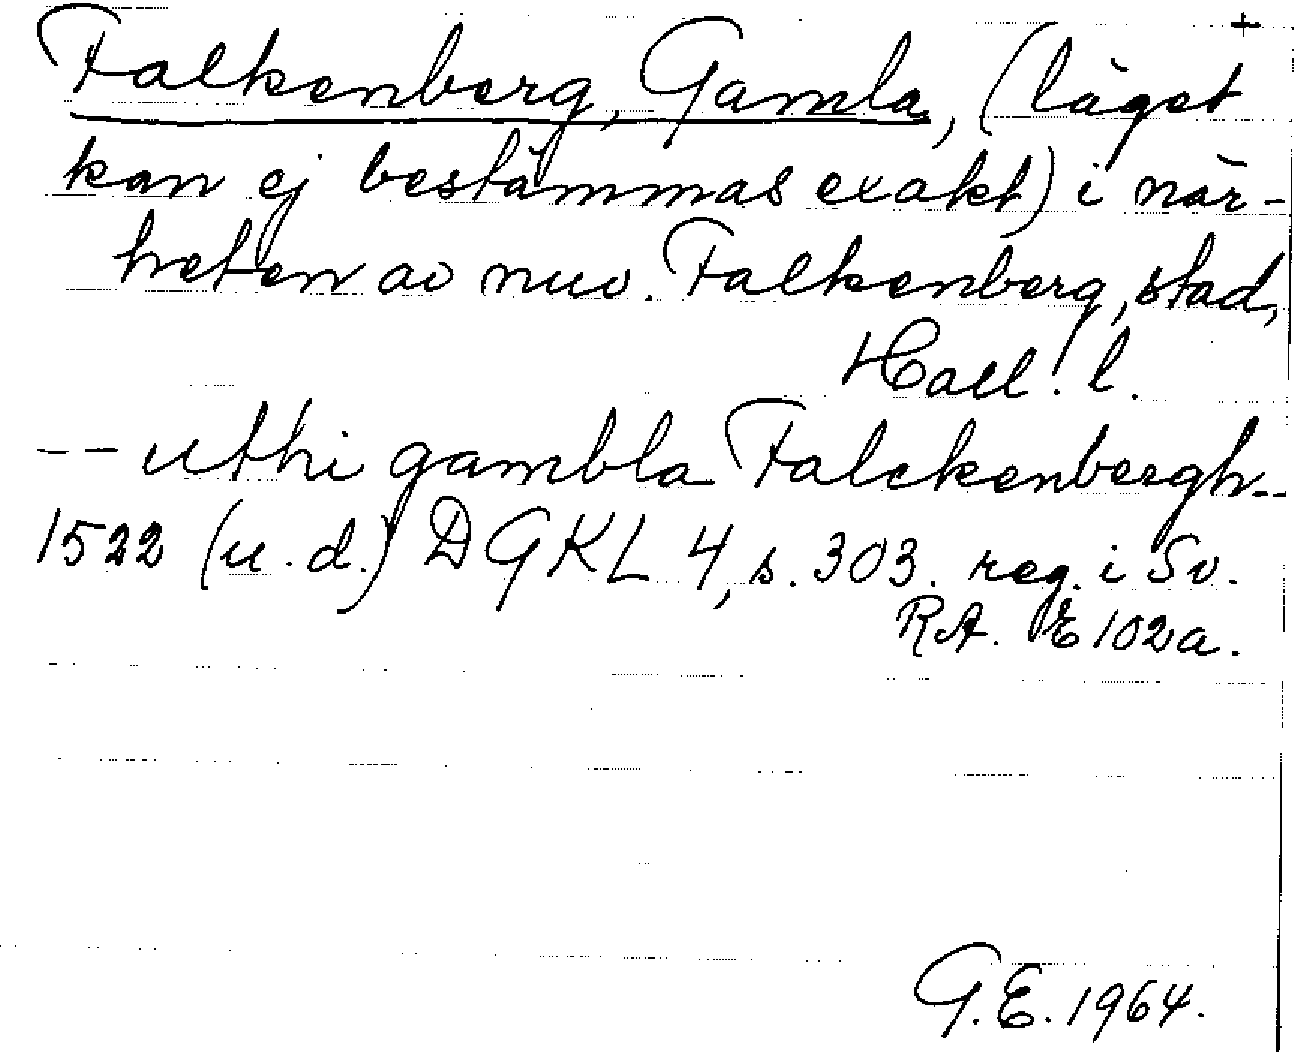 +
Falkenberg, Gamla, (läget
kan ej bestämmas exakt) i när-
heten av nuv. Falkenberg, stad,
Hall. l.
-- uthi gambla Falckenbergh --
1522 (u.d.) DGKL 4, s. 303. reg. i Sv.
RA. E 102a.
G.E. 1964.